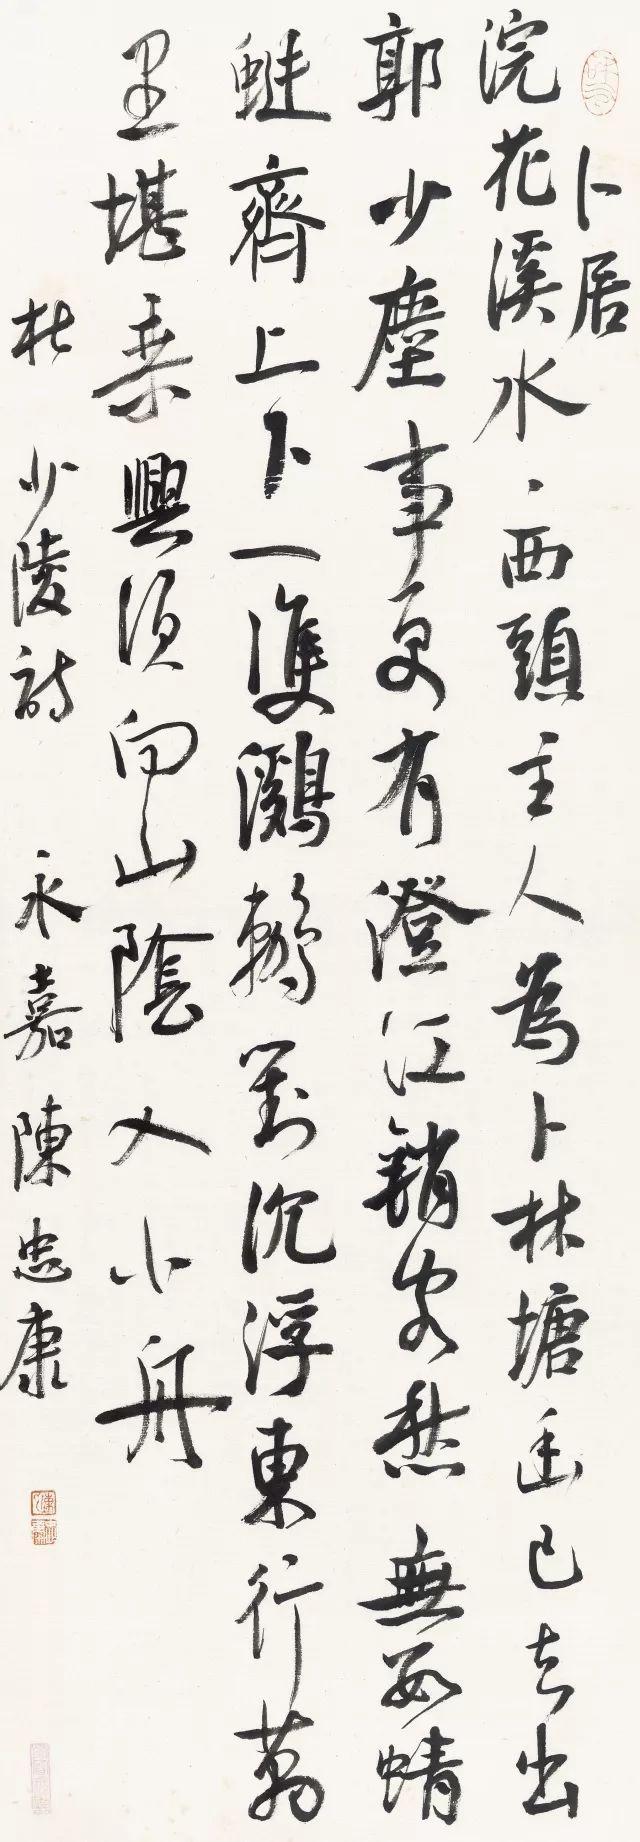 卜居
浣花溪水、西頭主人為卜林塘幽已知出
郭少塵事更有澄江銷客愁無數蜻
蜓齊上下一雙鸂鶒對沉浮東行萬
里堪乘興須向山陰入小舟
杜少陵詩 永嘉陳忠康